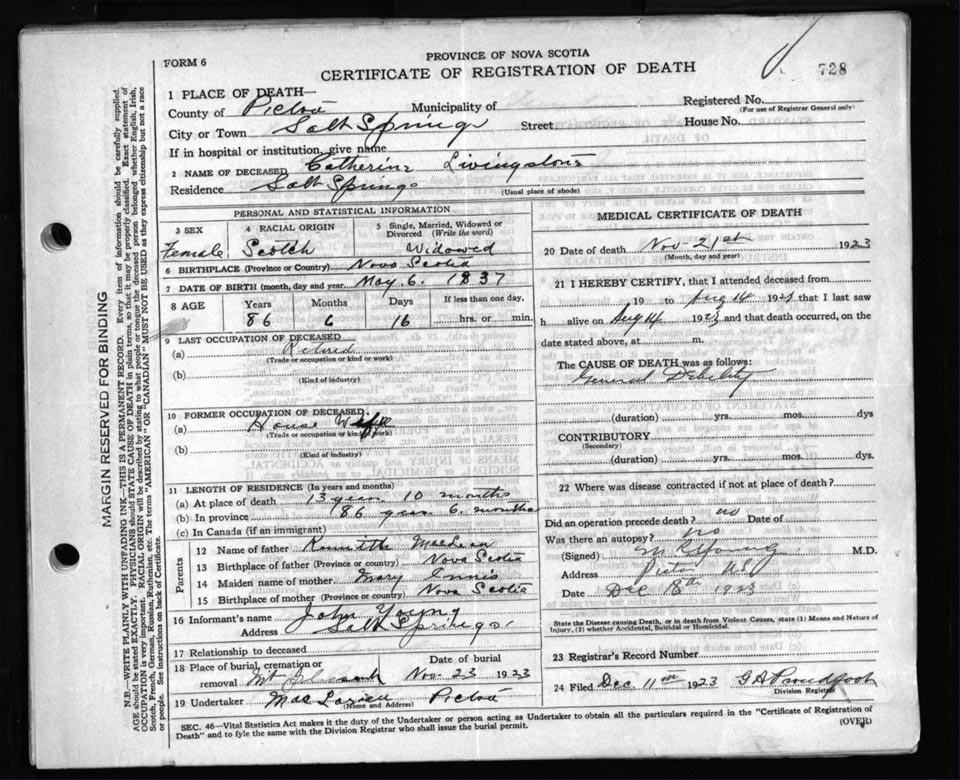 PROVINCE OF NOVA SCOTIA
FORM 6
CERTIFICATE OF REGISTRATION OF DEATH
728
1 PLACE OF DEATH—
County of Pictou Municipality of Registered No.
(For use of Registrar General only)
City or Town Salt Springs Street House No.
If in hospital or institution, give name
2 NAME OF DECEASED Catherine Livingstone
Residence Salt Springs (Usual place of abode)
PERSONAL AND STATISTICAL INFORMATION
3 SEX 4 RACIAL ORIGIN 5 Single, Married, Widowed or Divorced (Write the word)
Female Scotch Widowed
6 BIRTHPLACE (Province or Country) Nova Scotia
7 DATE OF BIRTH (month, day and year) May. 6. 1837
8 AGE Years Months Days If less than one day,
86 6 16 hrs. or min.
9 LAST OCCUPATION OF DECEASED
(a) Retired
(Trade or occupation or kind or work)
(b)
(Kind of industry)
10 FORMER OCCUPATION OF DECEASED
(a) House Wife
(Trade or occupation or kind of work)
(b)
(Kind of industry)
11 LENGTH OF RESIDENCE (In years and months)
(a) At place of death 13 years 10 months
(b) In province 86 years 6. months
(c) In Canada (if an immigrant)
Parents
12 Name of father Kenneth MacLean
13 Birthplace of father (Province or country) Nova Scotia
14 Maiden name of mother Mary Innis
15 Birthplace of mother (Province or country) Nova Scotia
16 Informant's name John Young
Address Salt Springs.
17 Relationship to deceased
18 Place of burial, cremation or removal Date of burial
Mt Nov. 23 1923
19 Undertaker Pictou
(Name and Address)
MEDICAL CERTIFICATE OF DEATH
20 Date of death Nov- 21st 1923
(Month, day and year)
21 I HEREBY CERTIFY, that I attended deceased from
19 to Aug 14 192 that I last saw
h alive on Aug 14 1923 and that death occurred, on
date stated above, at m.
The CAUSE OF DEATH was as follows:
General Debility
(duration) yrs. mos. dys
CONTRIBUTORY
(Secondary)
(duration) yrs. mos. dys.
22 Where was disease contracted if not at place of death?
Did an operation precede death? no Date of
Was there an autopsy? no
(Signed) M R Young M.D.
Address Pictou NS
Date Dec 8th 1923
State the Disease causing Death, or in death from Violent Causes, state (1) Means and Nature of
Injury, (2) whether Accidental, Suicidal or Homicidal.
23 Registrar's Record Number
24 Filed Dec. 11th 1923 G D Proudfoot
Division Registrar
SEC. 46—Vital Statistics Act makes it the duty of the Undertaker or person acting as Undertaker to obtain all the particulars required in the "Certificate of Registration of
Death" and to fyle the same with the Division Registrar who shall issue the burial permit.
(OVER)
MARGIN RESERVED FOR BINDING
N.B.—WRITE PLAINLY WITH UNFADING INK—THIS IS A PERMANENT RECORD. Every item of information should be carefully supplied.
AGE should be stated EXACTLY. PHYSICIANS should STATE CAUSE OF DEATH in plain terms, so that it may be properly classified. Exact statement of
OCCUPATION is very important. RACIAL ORIGIN will be described by stating to what people or tongue the deceased person belonged whether English, Irish,
Scotch, French, German, Russian, Ruthenian, etc. The terms "AMERICAN" OR "CANADIAN" MUST NOT BE USED as they express citizenship but not a race
or people. See instructions on back of Certificate.